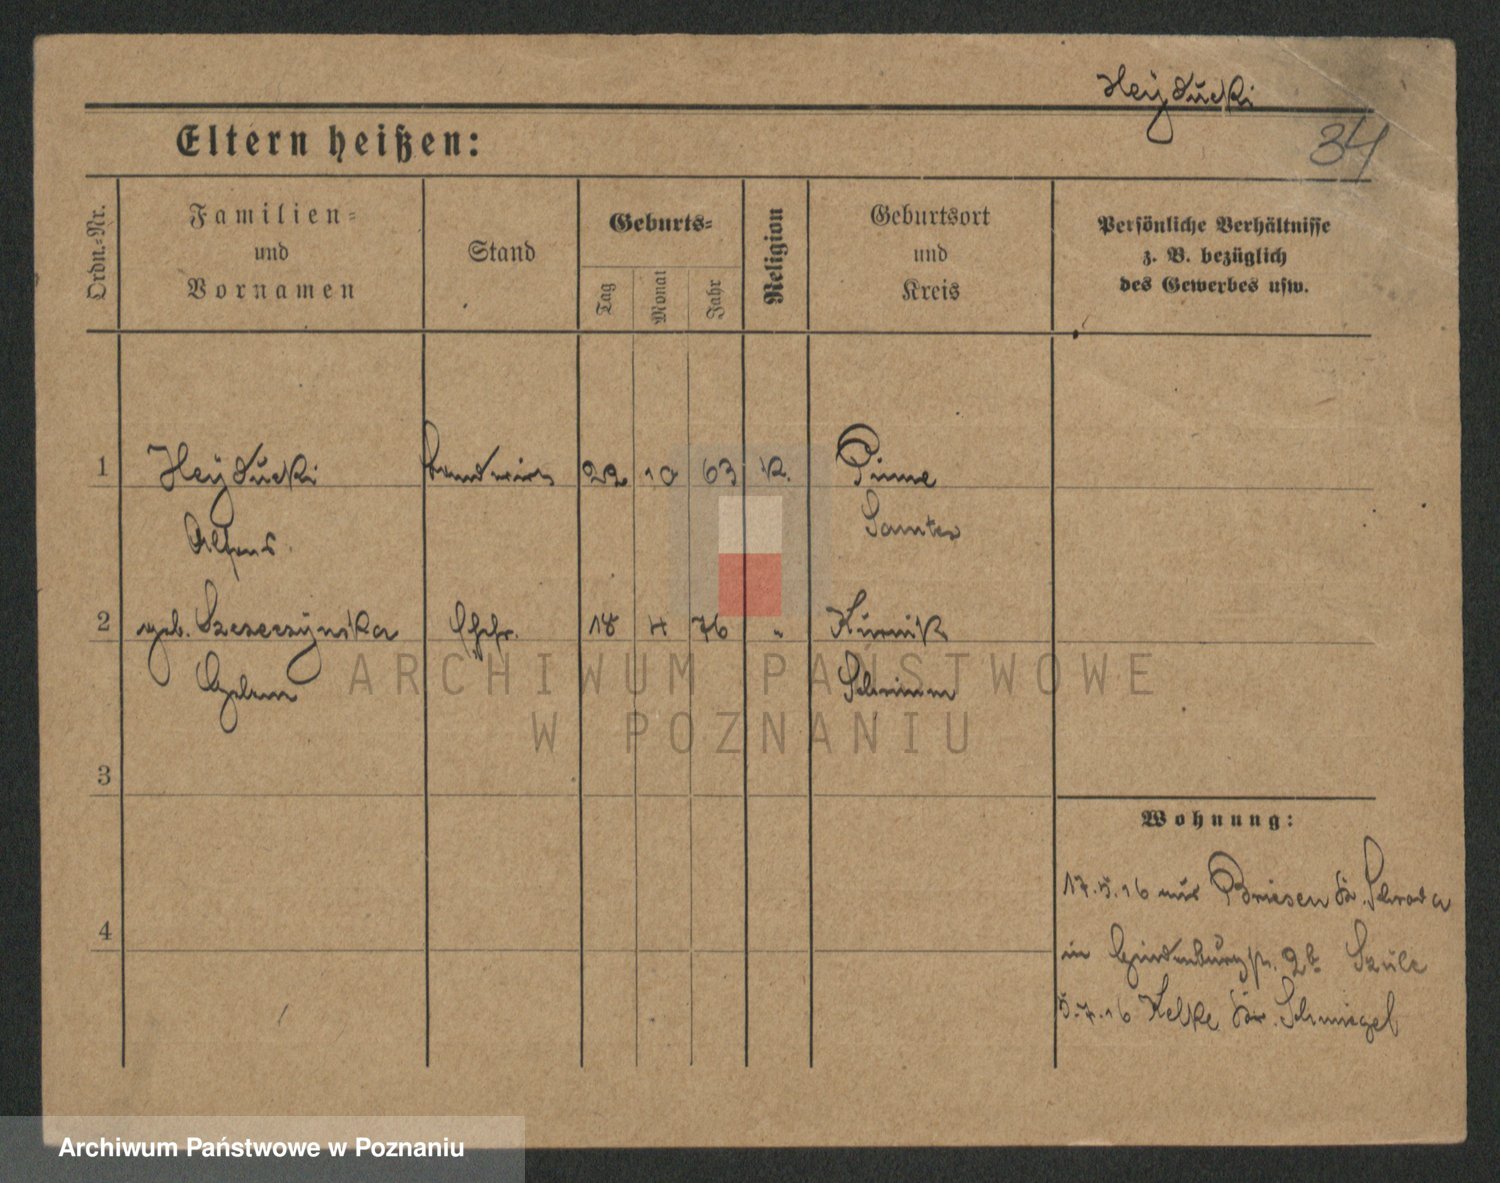 Heÿducki
34
Eltern heißen:
Ordn.=Nr.
Familien=
und
Vornamen
Stand
Geburts=
Tag
Monat
Jahr
Religion
Geburtsort
und
Kreis
Persönliche Verhältnisse
z. B. bezüglich
des Gewerbes usw.
1 Heÿducki Landwirt 22 10 63 K. Pinne
Alfons Samter
2 geb. Szeserzÿnska Ehefr. 18 4 76 " Kurnik
Helene Schrimm
3
Wohnung:
17.5.16 aus Briesen Kr. Schroda
4
in Hindenburgstr. 2b Szulc
5.7.16 Kr. Schmiegel
ARCHIWUM PAŃSTWOWE
W POZNANIU
Archiwum Państwowe w Poznaniu